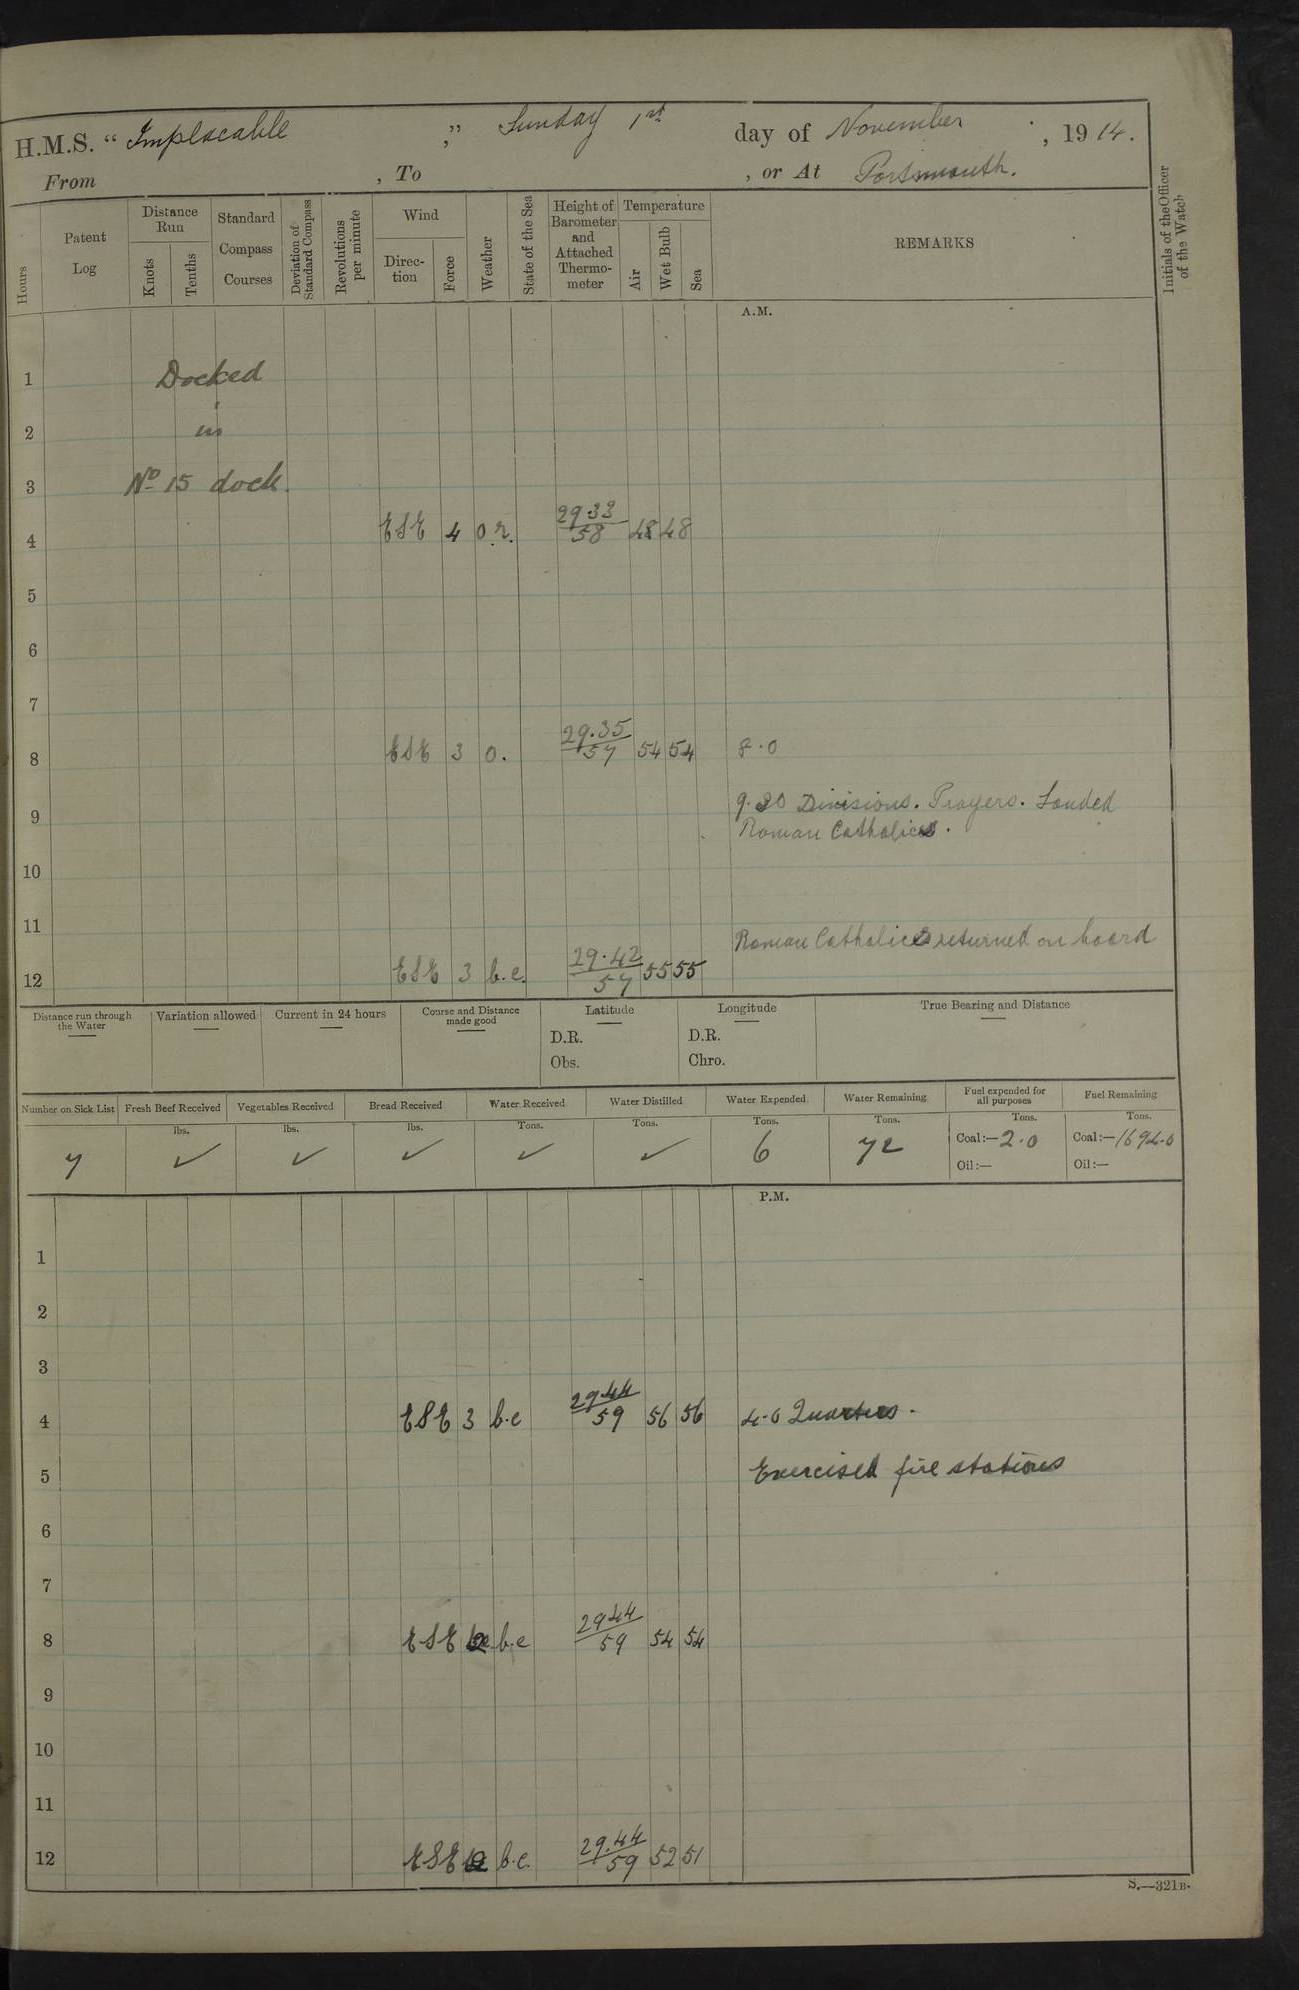 H.M.S. “ Implacable ,” Sunday 1st day of November , 19 14.
From , To , or At Portsmouth.
Hours
Patent Log
Distance Run
Knots
Tenths
Standard Compass Courses
Deviation of Standard Compass
Revolutions per minute
Wind
Direc-tion
Force
Weather
State of the Sea
Height of Barometer and Attached Thermo-meter
Temperature
Air
Wet Bulb
Sea
REMARKS
Initials of the Officer of the Watch
A.M.
1 Docked
2 in
3 No 15 dock.
4 ESE 4 o.r. 29.33/58 48 48
5
6
7
8 ESE 3 o. 29.35/57 54 54 8.0
9.30 Divisions. Prayers. Landed
9 Roman Catholics.
10
11 Roman Catholics returned on board
12 ESE 3 b.c. 29.42/57 55 55
Distance run through the Water
Variation allowed
Current in 24 hours
Course and Distance made good
Latitude
D.R.
Obs.
Longitude
D.R.
Chro.
True Bearing and Distance
Number on Sick List Fresh Beef Received Vegetables Received Bread Received Water Received Water Distilled Water Expended Water Remaining Fuel expended for all purposes Fuel Remaining
lbs. lbs. lbs. Tons. Tons. Tons. Tons. Tons. Tons.
7 ✓ ✓ ✓ ✓ ✓ 6 72 Coal:— 2.0 Coal:— 1694.0
Oil:— Oil:—
P.M.
1
2
3
4 ESE 3 b.c 29.44/59 56 56 4.0 Quarters.
5 Exercised fire stations
6
7
8 ESE b.c 29.44/59 54 54
9
10
11
12 ESE b.c. 29.44/59 52 51
S.—321B.